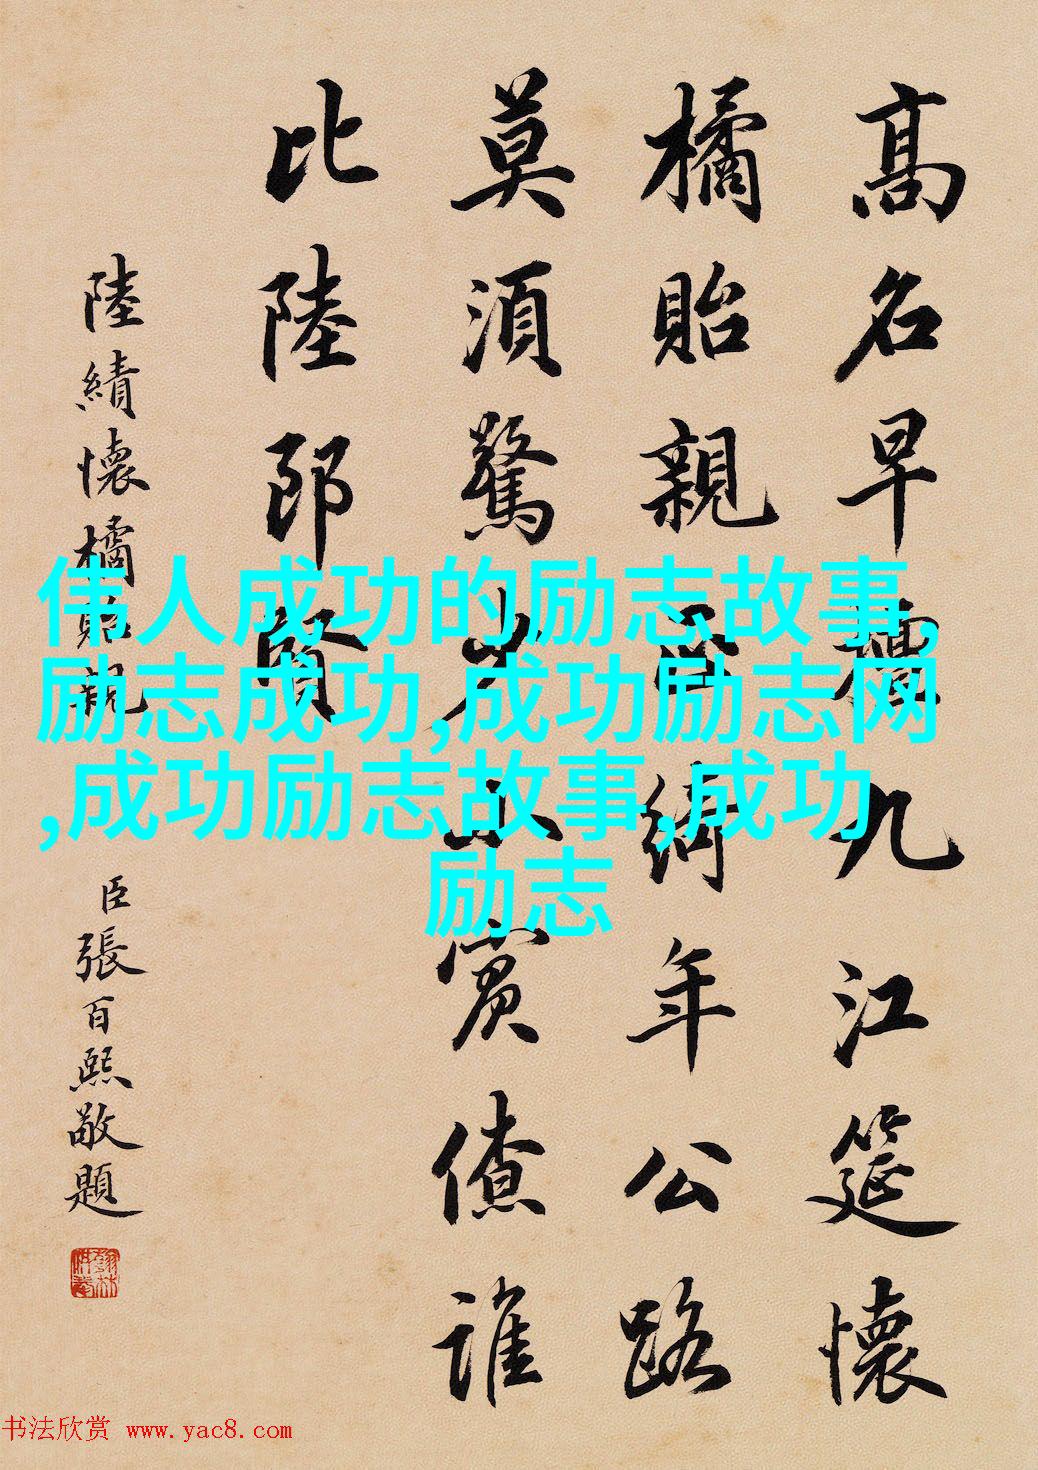 高名早擅九江筵懷
橘貽親當綺年公路
莫須驚少小賓僚誰
比陸郎賢
陸績懷橘貽親
臣張百熙敬題
伟人成功的励志故事,
励志成功,成功励志网
,成功励志故事,成功
励志
书法欣赏 www.yac8.com